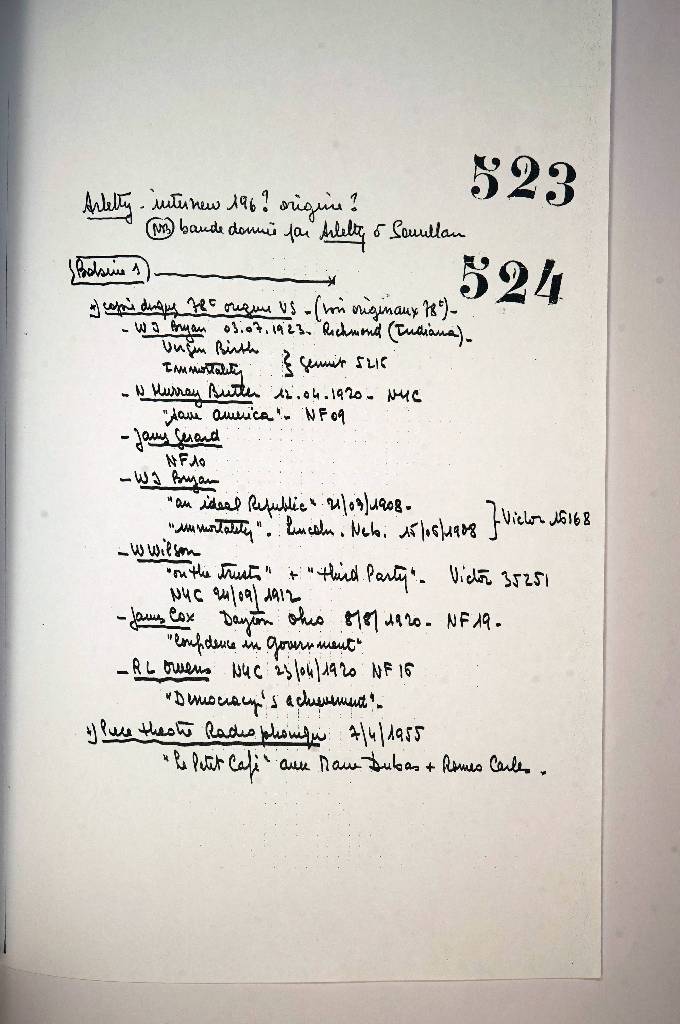 523
Arletty - interview 196? origine?
(NB) bande donnée par Arletty à
524
Bobine 1
*) copie disques 78t origine US - (voir originaux 78t) -
- WJ Bryan 03.07.1923. Richmond (Indiana) -
Virgin Birth
Immortality } Gennett 5215
- N Murray Butler 12.04.1920 - NYC
"save america" - NF09
- James Gerard
NF10
- WJ Bryan
"an ideal Republic" 21/03/1908 -
"immortality" - Lincoln. Neb. 15/05/1908 } Victor 16168
- W Wilson
"on the trusts" + "third Party" - Victor 35251
NYC 24/09/1912
- James Cox Dayton Ohio 8/8/1920 - NF19 -
"Confidence in government"
- RL Owens NYC 23/04/1920 NF15
"Democracy's achievement" -
*) Piece theatre Radiophonique 7/4/1955
"Le Petit Café" avec Marie Dubas + Romeo Carles .